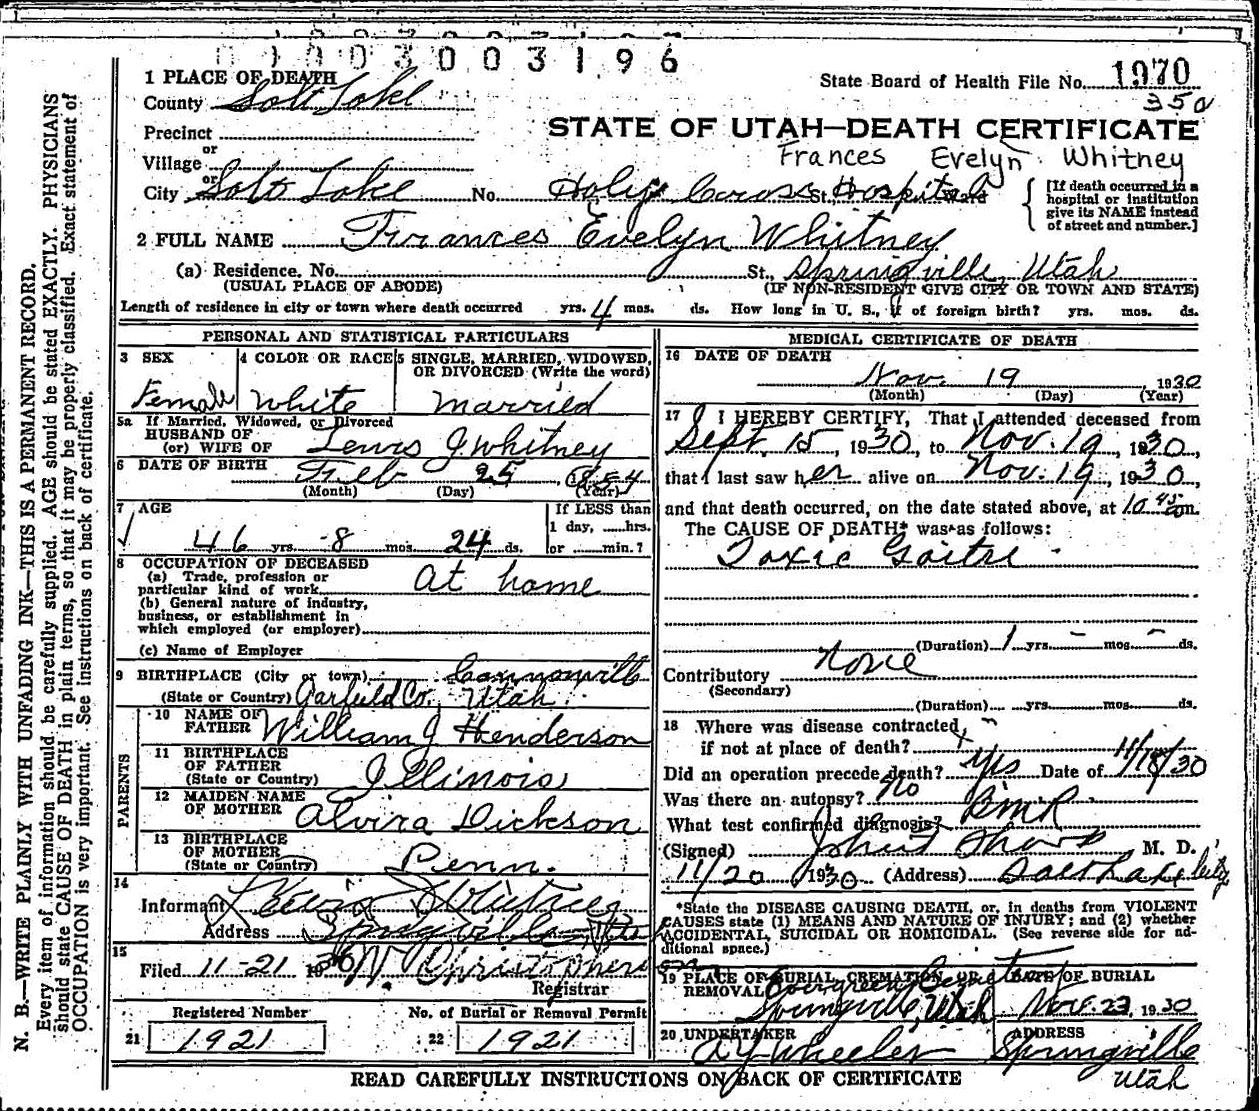 003003196
State Board of Health File No. 1970
350
1 PLACE OF DEATH
County Salt Lake
STATE OF UTAH—DEATH CERTIFICATE
Precinct
or
Village
Frances Evelyn Whitney
or
City Salt Lake No. Holy Cross St. Hospital Ward
[If death occurred in a
hospital or institution
give its NAME instead
of street and number.]
2 FULL NAME Frances Evelyn Whitney
(a) Residence. No. St., Springville, Utah
(USUAL PLACE OF ABODE) (IF NON-RESIDENT GIVE CITY OR TOWN AND STATE)
Length of residence in city or town where death occurred yrs. 4 mos. ds. How long in U. S., if of foreign birth? yrs. mos. ds.
PERSONAL AND STATISTICAL PARTICULARS
3 SEX 4 COLOR OR RACE 5 SINGLE, MARRIED, WIDOWED,
OR DIVORCED (Write the word)
Female White Married
5a If Married, Widowed, or Divorced
HUSBAND OF
(or) WIFE OF Lewis J. Whitney
6 DATE OF BIRTH Feb 25, 1884
(Month) (Day) (Year)
7 AGE If LESS than
1 day, ......hrs.
46 yrs. 8 mos. 24 ds. or ......min.?
8 OCCUPATION OF DECEASED
(a) Trade, profession or
particular kind of work At home
(b) General nature of industry,
business, or establishment in
which employed (or employer)
(c) Name of Employer
9 BIRTHPLACE (City or town) Cannonville
(State or Country) Garfield Co. Utah
PARENTS
10 NAME OF
FATHER William J Henderson
11 BIRTHPLACE
OF FATHER
(State or Country) Illinois
12 MAIDEN NAME
OF MOTHER Alvira Dickson
13 BIRTHPLACE
OF MOTHER
(State or Country) Penn.
14
Informant Lewis J Whitney
Address Springville, Utah
15
Filed 11-21 1930 W. Christopherson
Registrar
Registered Number No. of Burial or Removal Permit
21 1921 22 1921
MEDICAL CERTIFICATE OF DEATH
16 DATE OF DEATH
Nov. 19, 1930
(Month) (Day) (Year)
17 I HEREBY CERTIFY, That I attended deceased from
Sept. 15, 1930, to Nov. 19, 1930,
that I last saw her alive on Nov. 19, 1930,
and that death occurred, on the date stated above, at 10 45 m.
The CAUSE OF DEATH* was as follows:
Toxic Goitre
(Duration) 1 yrs. - mos. - ds.
Contributory None
(Secondary)
(Duration) yrs. mos. ds.
18 Where was disease contracted,
if not at place of death?
Did an operation precede death? Yes Date of 11/18/30
Was there an autopsy? No
What test confirmed diagnosis? BMR
(Signed) M. D.
11/20, 1930 (Address) Salt Lake City
*State the DISEASE CAUSING DEATH, or, in deaths from VIOLENT
CAUSES state (1) MEANS AND NATURE OF INJURY; and (2) whether
ACCIDENTAL, SUICIDAL OR HOMICIDAL. (See reverse side for ad-
ditional space.)
19 PLACE OF BURIAL, CREMATION, OR DATE OF BURIAL
REMOVAL Evergreen Cemetery
Springville, Utah Nov. 23, 1930
20 UNDERTAKER ADDRESS
A Y Wheeler Springville
Utah
READ CAREFULLY INSTRUCTIONS ON BACK OF CERTIFICATE
N. B.—WRITE PLAINLY WITH UNFADING INK—THIS IS A PERMANENT RECORD.
Every item of information should be carefully supplied. AGE should be stated EXACTLY. PHYSICIANS
should state CAUSE OF DEATH in plain terms, so that it may be properly classified. Exact statement of
OCCUPATION is very important. See instructions on back of certificate.